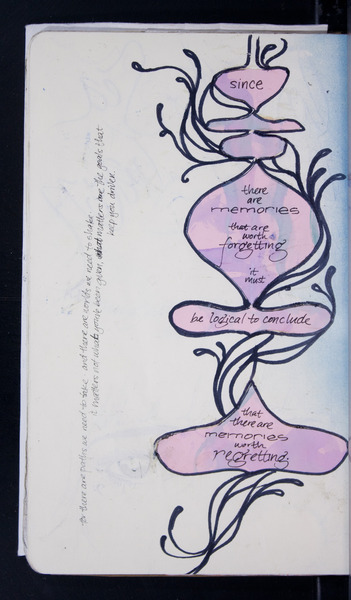 since
there
are
memories
that are
worth
forgetting
it
must
be logical to conclude
that
there are
memories
worth
regretting.
there are paths we need to take. and there are worlds we need to shake.
it matters not what you've been given, what matters are the goals that
keep you driven.